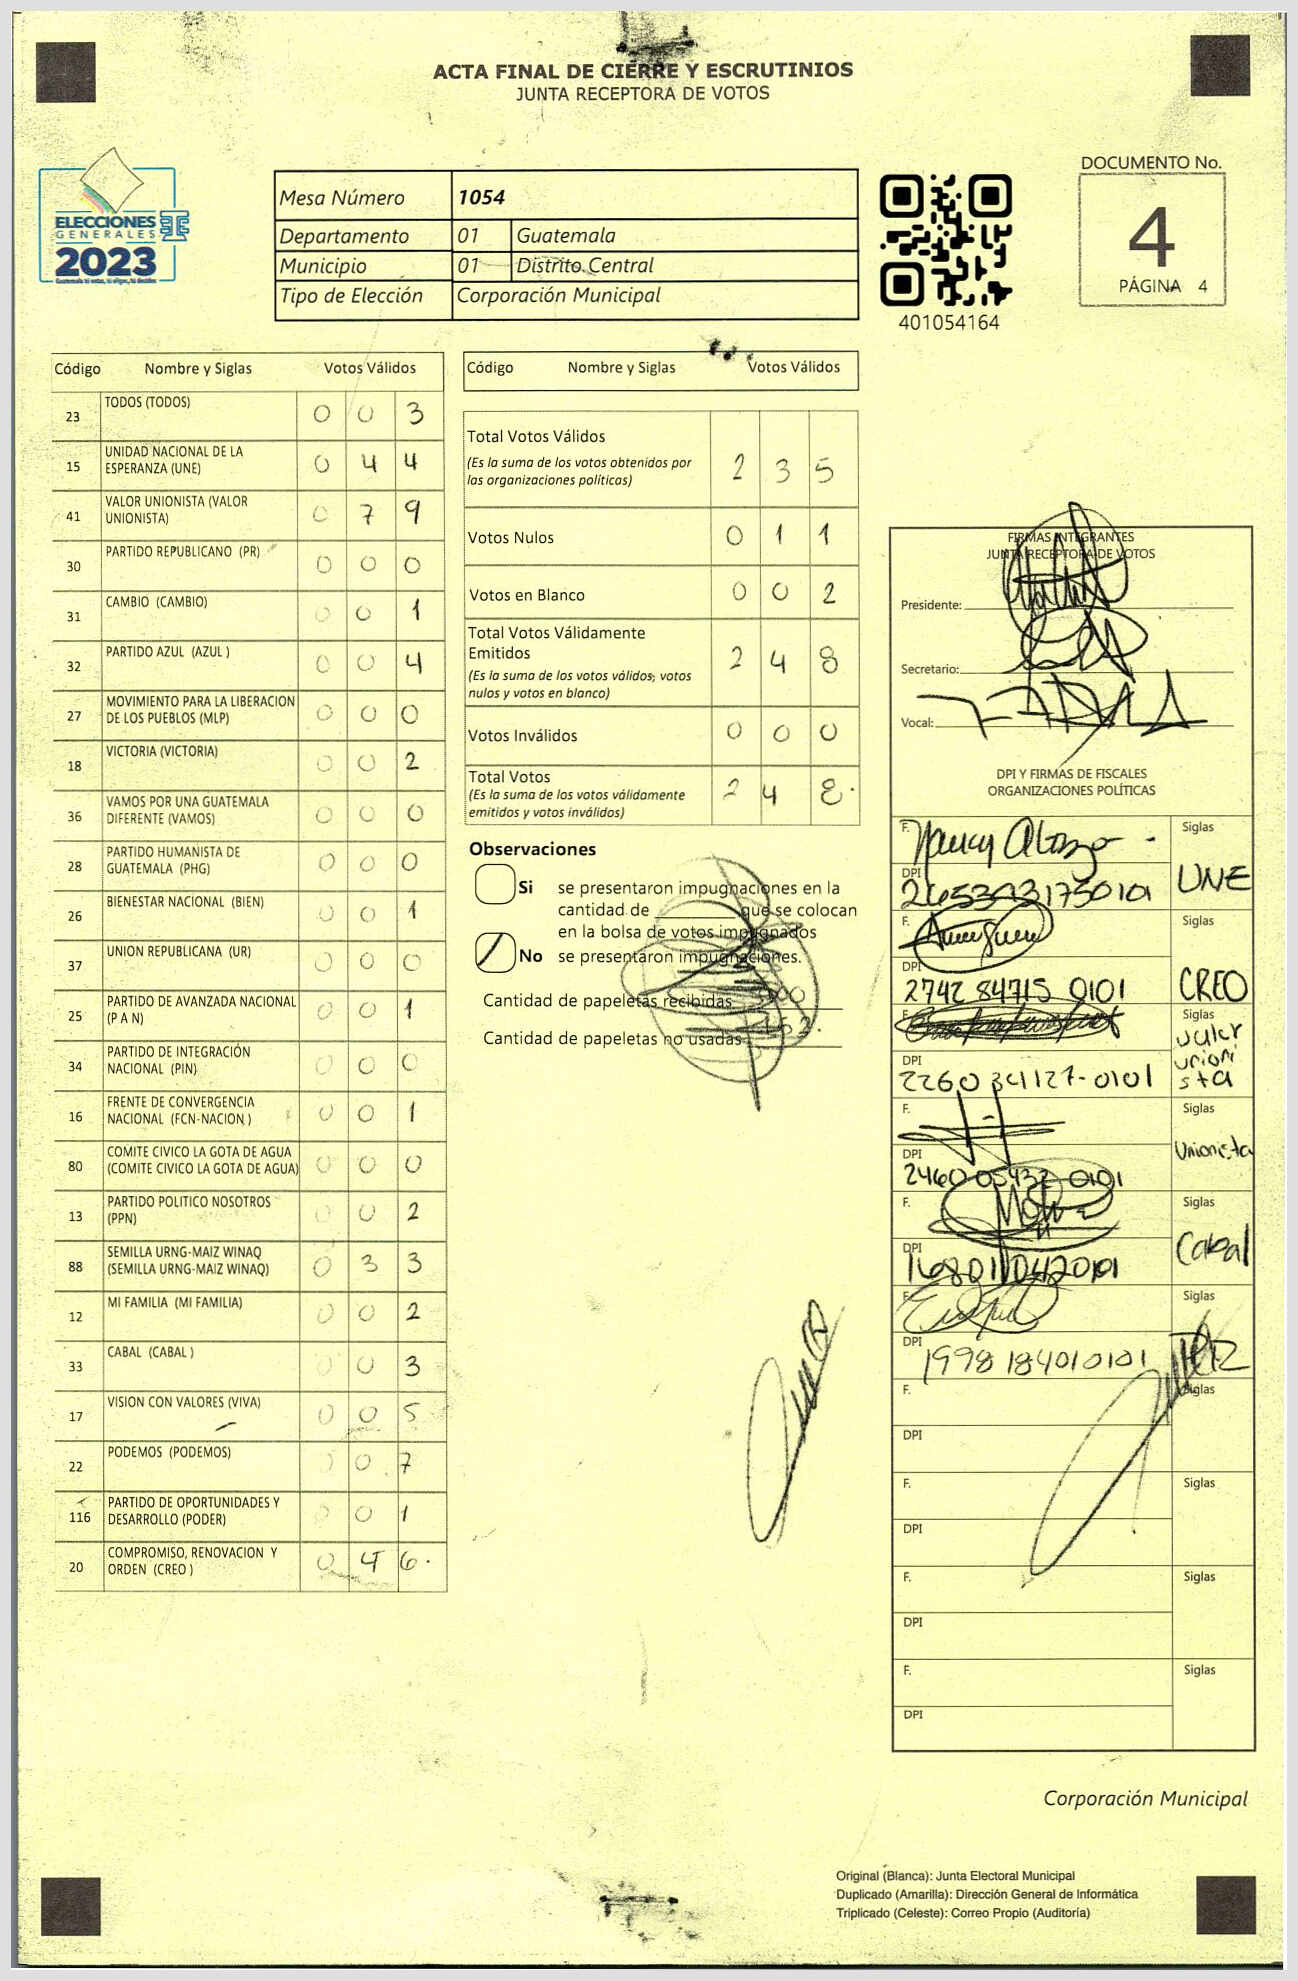 ACTA FINAL DE CIERRE Y ESCRUTINIOS
JUNTA RECEPTORA DE VOTOS
ELECCIONES
GENERALES
2023
Mesa Número 1054
Departamento 01 Guatemala
Municipio 01 Distrito Central
Tipo de Elección Corporación Municipal
401054164
DOCUMENTO No.
4
PÁGINA 4
Código Nombre y Siglas Votos Válidos
23 TODOS (TODOS) 0 0 3
15 UNIDAD NACIONAL DE LA ESPERANZA (UNE) 0 4 4
41 VALOR UNIONISTA (VALOR UNIONISTA) 0 7 9
30 PARTIDO REPUBLICANO (PR) 0 0 0
31 CAMBIO (CAMBIO) 0 0 1
32 PARTIDO AZUL (AZUL ) 0 0 4
27 MOVIMIENTO PARA LA LIBERACION DE LOS PUEBLOS (MLP) 0 0 0
18 VICTORIA (VICTORIA) 0 0 2
36 VAMOS POR UNA GUATEMALA DIFERENTE (VAMOS) 0 0 0
28 PARTIDO HUMANISTA DE GUATEMALA (PHG) 0 0 0
26 BIENESTAR NACIONAL (BIEN) 0 0 1
37 UNION REPUBLICANA (UR) 0 0 0
25 PARTIDO DE AVANZADA NACIONAL (P A N) 0 0 1
34 PARTIDO DE INTEGRACIÓN NACIONAL (PIN) 0 0 0
16 FRENTE DE CONVERGENCIA NACIONAL (FCN-NACION ) 0 0 1
80 COMITE CIVICO LA GOTA DE AGUA (COMITE CIVICO LA GOTA DE AGUA) 0 0 0
13 PARTIDO POLITICO NOSOTROS (PPN) 0 0 2
88 SEMILLA URNG-MAIZ WINAQ (SEMILLA URNG-MAIZ WINAQ) 0 3 3
12 MI FAMILIA (MI FAMILIA) 0 0 2
33 CABAL (CABAL ) 0 0 3
17 VISION CON VALORES (VIVA) 0 0 5
22 PODEMOS (PODEMOS) 0 0 7
116 PARTIDO DE OPORTUNIDADES Y DESARROLLO (PODER) 0 0 1
20 COMPROMISO, RENOVACION Y ORDEN (CREO ) 0 4 6.
Código Nombre y Siglas Votos Válidos
Total Votos Válidos 2 3 5
(Es la suma de los votos obtenidos por
las organizaciones políticas)
Votos Nulos 0 1 1
Votos en Blanco 0 0 2
Total Votos Válidamente
Emitidos 2 4 8
(Es la suma de los votos válidos, votos
nulos y votos en blanco)
Votos Inválidos 0 0 0
Total Votos 2 4 8.
(Es la suma de los votos válidamente
emitidos y votos inválidos)
Observaciones
Si se presentaron impugnaciones en la
cantidad de ________ que se colocan
en la bolsa de votos impugnados
No se presentaron impugnaciones.
Cantidad de papeletas recibidas
Cantidad de papeletas no usadas
FIRMAS INTEGRANTES
JUNTA RECEPTORA DE VOTOS
Presidente:
Secretario:
Vocal:
DPI Y FIRMAS DE FISCALES
ORGANIZACIONES POLÍTICAS
F. Siglas
DPI UNE
F. Siglas
DPI 2742 84715 0101 CREO
F. Siglas
DPI 2260 34127-0101 valor unionista
F. Siglas
DPI 2460 05432-0101 Unionista
F. Siglas
DPI Cabal
F. Siglas
DPI 1998 18401 0101
F. Siglas
DPI
F. Siglas
DPI
F. Siglas
DPI
F. Siglas
DPI
Corporación Municipal
Original (Blanca): Junta Electoral Municipal
Duplicado (Amarilla): Dirección General de Informática
Triplicado (Celeste): Correo Propio (Auditoría)